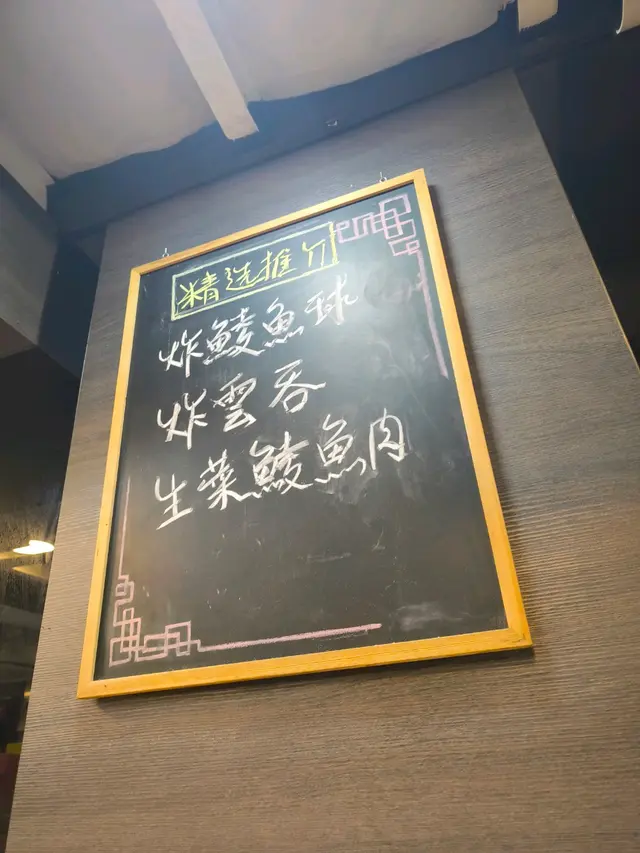 精选推介
炸鯪魚球
炸雲吞
生菜鯪魚肉